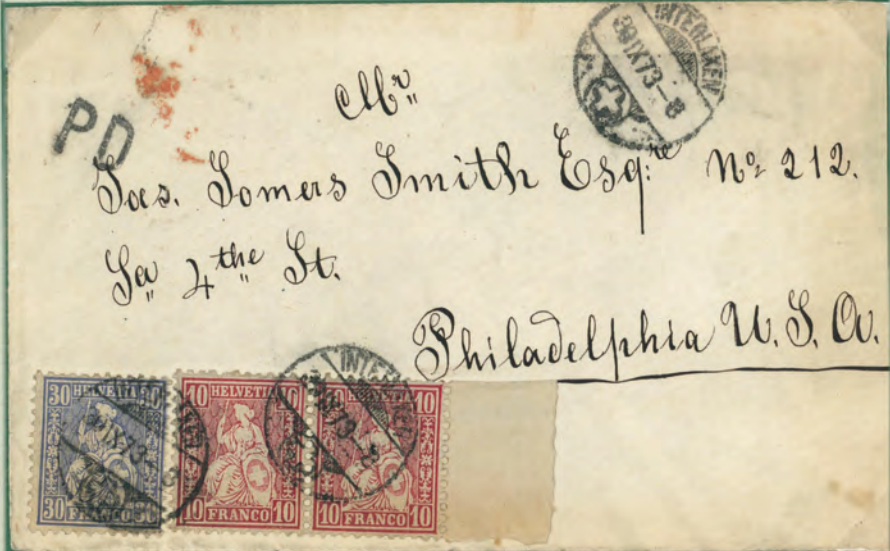 INTERLAKEN
IX 73-8
PD
Mr
Jos. Somers Smith Esqre No 212.
So 4the St.
Philadelphia U. S. A.
INTERLAKEN
IX 73-8
30 HELVETIA 30
30 FRANCO 30
10 HELVETIA 10
10 FRANCO 10
10 HELVETIA 10
10 FRANCO 10